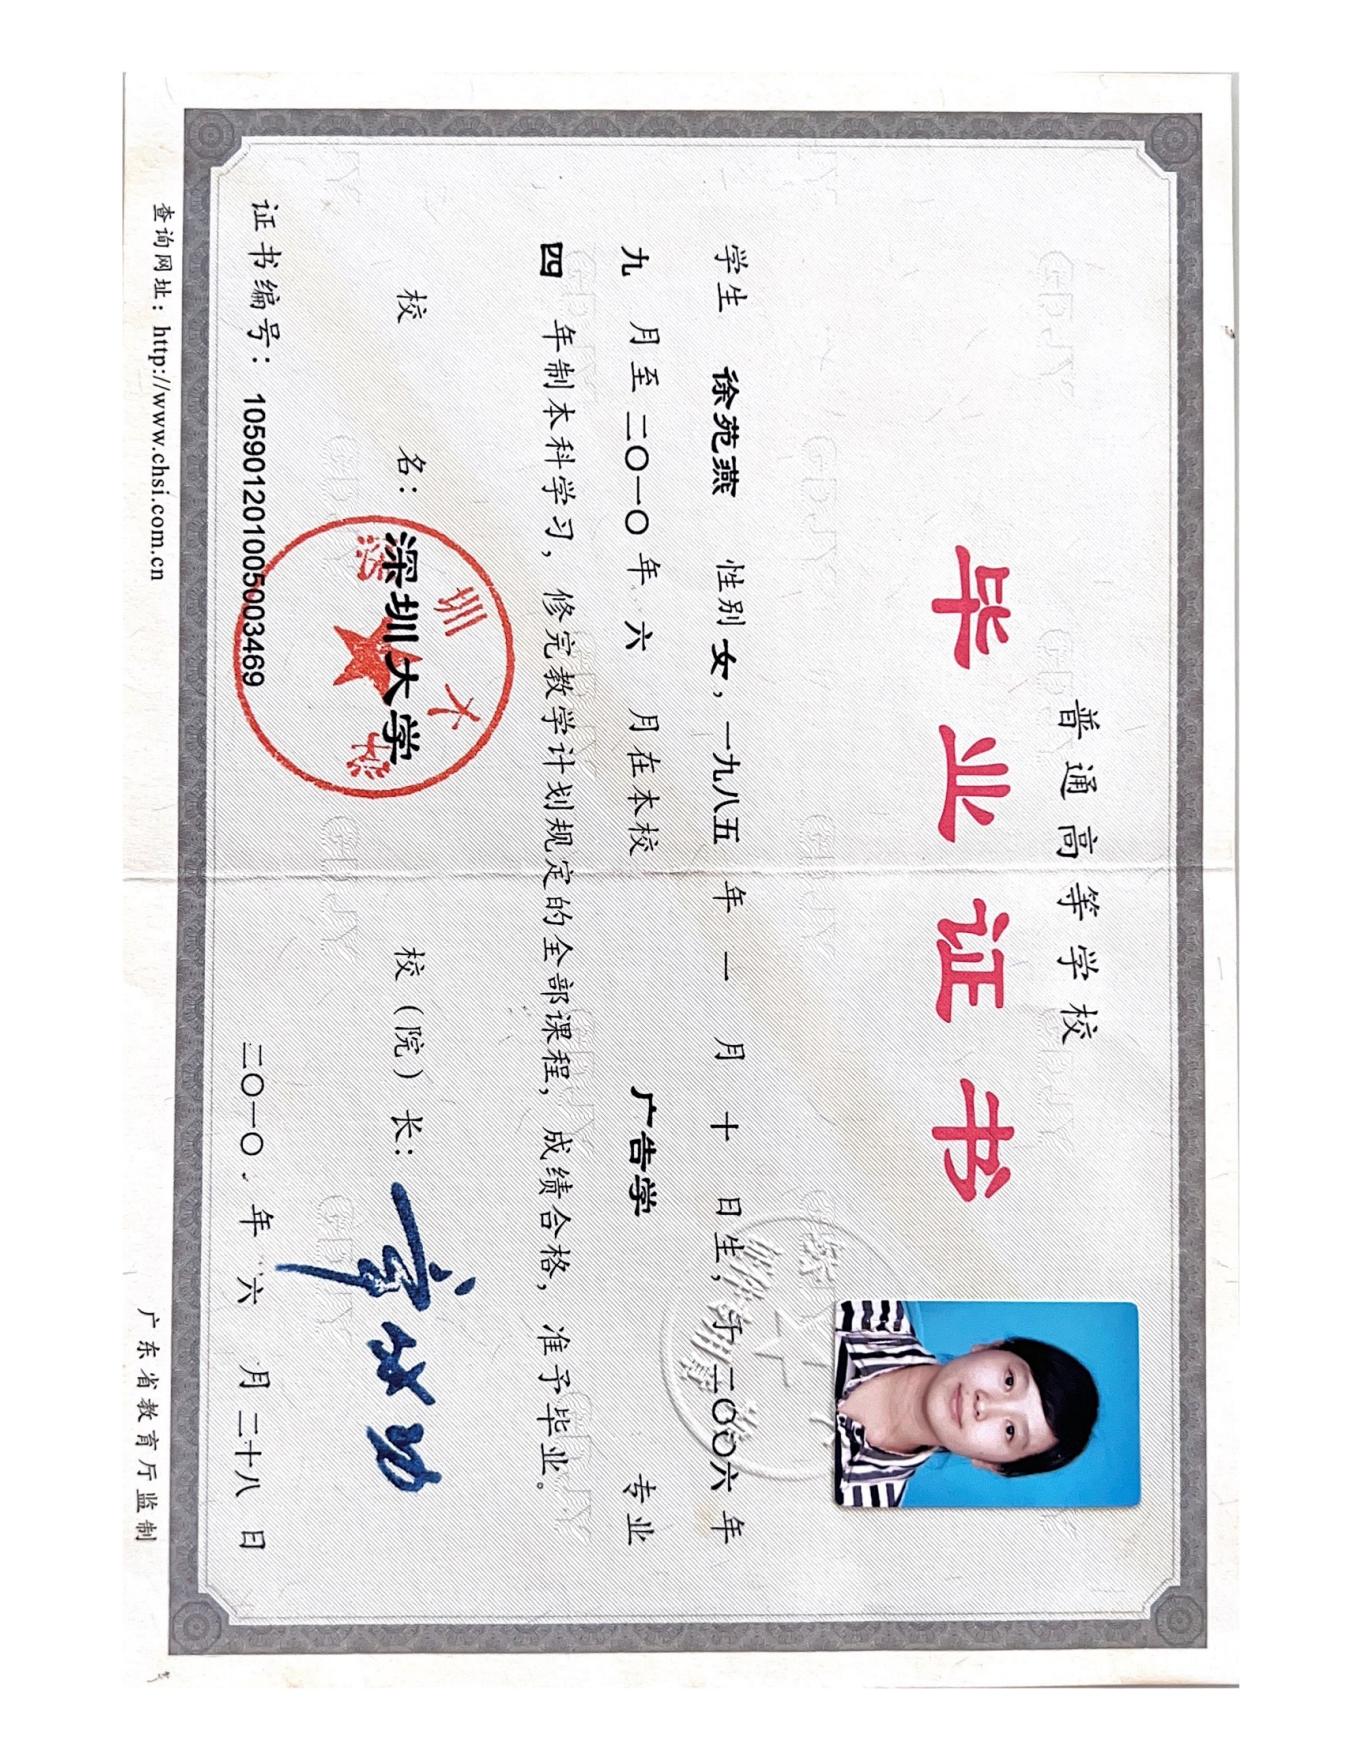 普通高等学校
毕业证书
学生 徐苑燕 性别 女，一九八五 年 一 月 十 日生，于 二〇〇六 年
九 月至 二〇一〇 年 六 月在本校 广告学 专业
四 年制本科学习，修完教学计划规定的全部课程，成绩合格，准予毕业。
校 名： 深圳大学 校（院）长：
深圳大学
证书编号： 105901201005003469 二〇一〇 年 六 月 二十八 日
查询网址：http://www.chsi.com.cn 广东省教育厅监制
GDJY